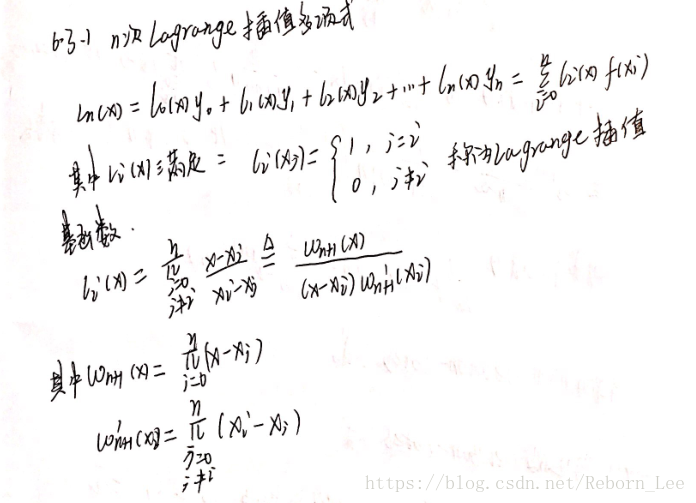 6.3.1 n次Lagrange插值多项式
Ln(x) = l₀(x)y₀ + l₁(x)y₁ + l₂(x)y₂ + ... + ln(x)yn = ∑_{i=0}^{n} li(x) f(xi)
其中li(x)满足: li(xj) = { 1, j=i
0, j≠i 称为Lagrange插值
基函数.
li(x) = ∏_{j=0, j≠i}^{n} (x-xj)/(xi-xj) ≜ ωn+1(x)/((x-xi)ω'n+1(xi))
其中ωn+1(x) = ∏_{j=0}^{n} (x-xj)
ω'n+1(xi) = ∏_{j=0, j≠i}^{n} (xi-xj)
https://blog.csdn.net/Reborn_Lee